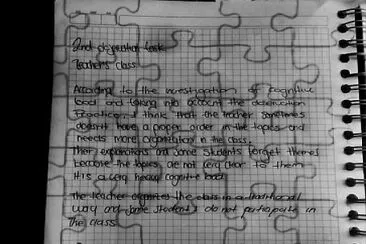 2nd observation task
Teacher's class.
According to the investigation of cognitive
load and taking into account the observation
Practice, I think that the teacher sometimes
doesn't have a proper order in the topics and
needs more organization in the class.
explanations and some students forget themes
because the topics are not very clear to them
It is a very heavy cognitive load
The teacher organizes the class in a traditional
way and some students do not participate in
The class